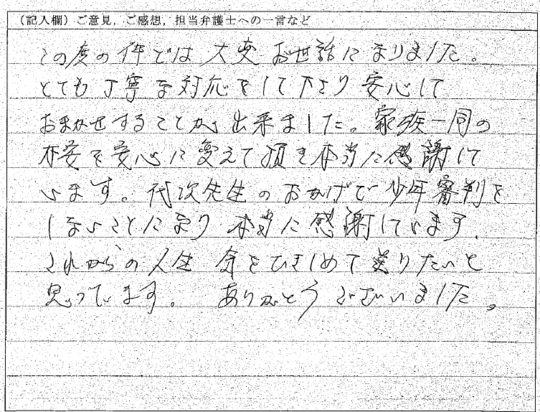 (記入欄)ご意見,ご感想,担当弁護士への一言など
この度の件では 大変 お世話になりました。
とても丁寧な対応をして下さり 安心して
おまかせすることが 出来ました。家族一同の
不安を安心に変えて頂き本当に感謝して
います。代次先生のおかげで少年審判を
しないことになり 本当に感謝しています。
これからの人生 気をひきしめて送りたいと
思っています。 ありがとうございました。